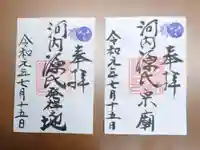 奉拝
河内源氏発祥地
令和元年七月十五日
奉拝
河内源氏宗廟
令和元年七月十五日